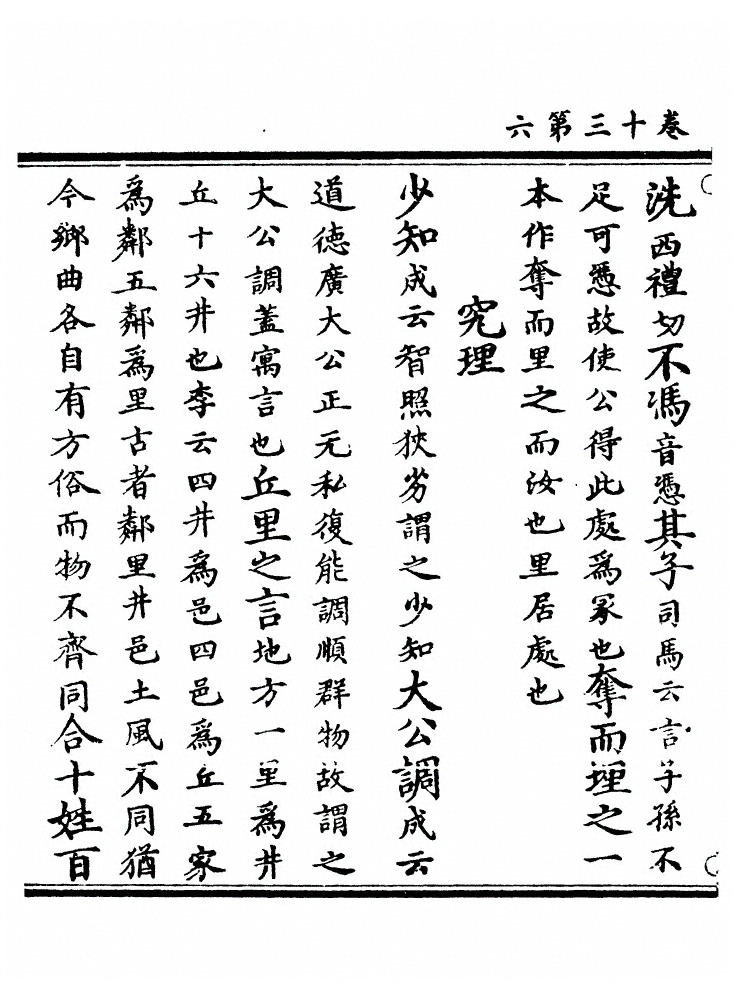 卷十三第六
洗西禮切不馮音憑其子司馬云言子孫不
足可憑故使公得此處為冢也奪而埋之一
本作奪而里之而汝也里居處也
究理
少知成云智照狹劣謂之少知大公調成云
道德廣大公正无私復能調順群物故謂之
大公調蓋寓言也丘里之言地方一里為井
丘十六井也李云四井為邑四邑為丘五家
為鄰五鄰為里古者鄰里井邑土風不同猶
今鄉曲各自有方俗而物不齊同合十姓百